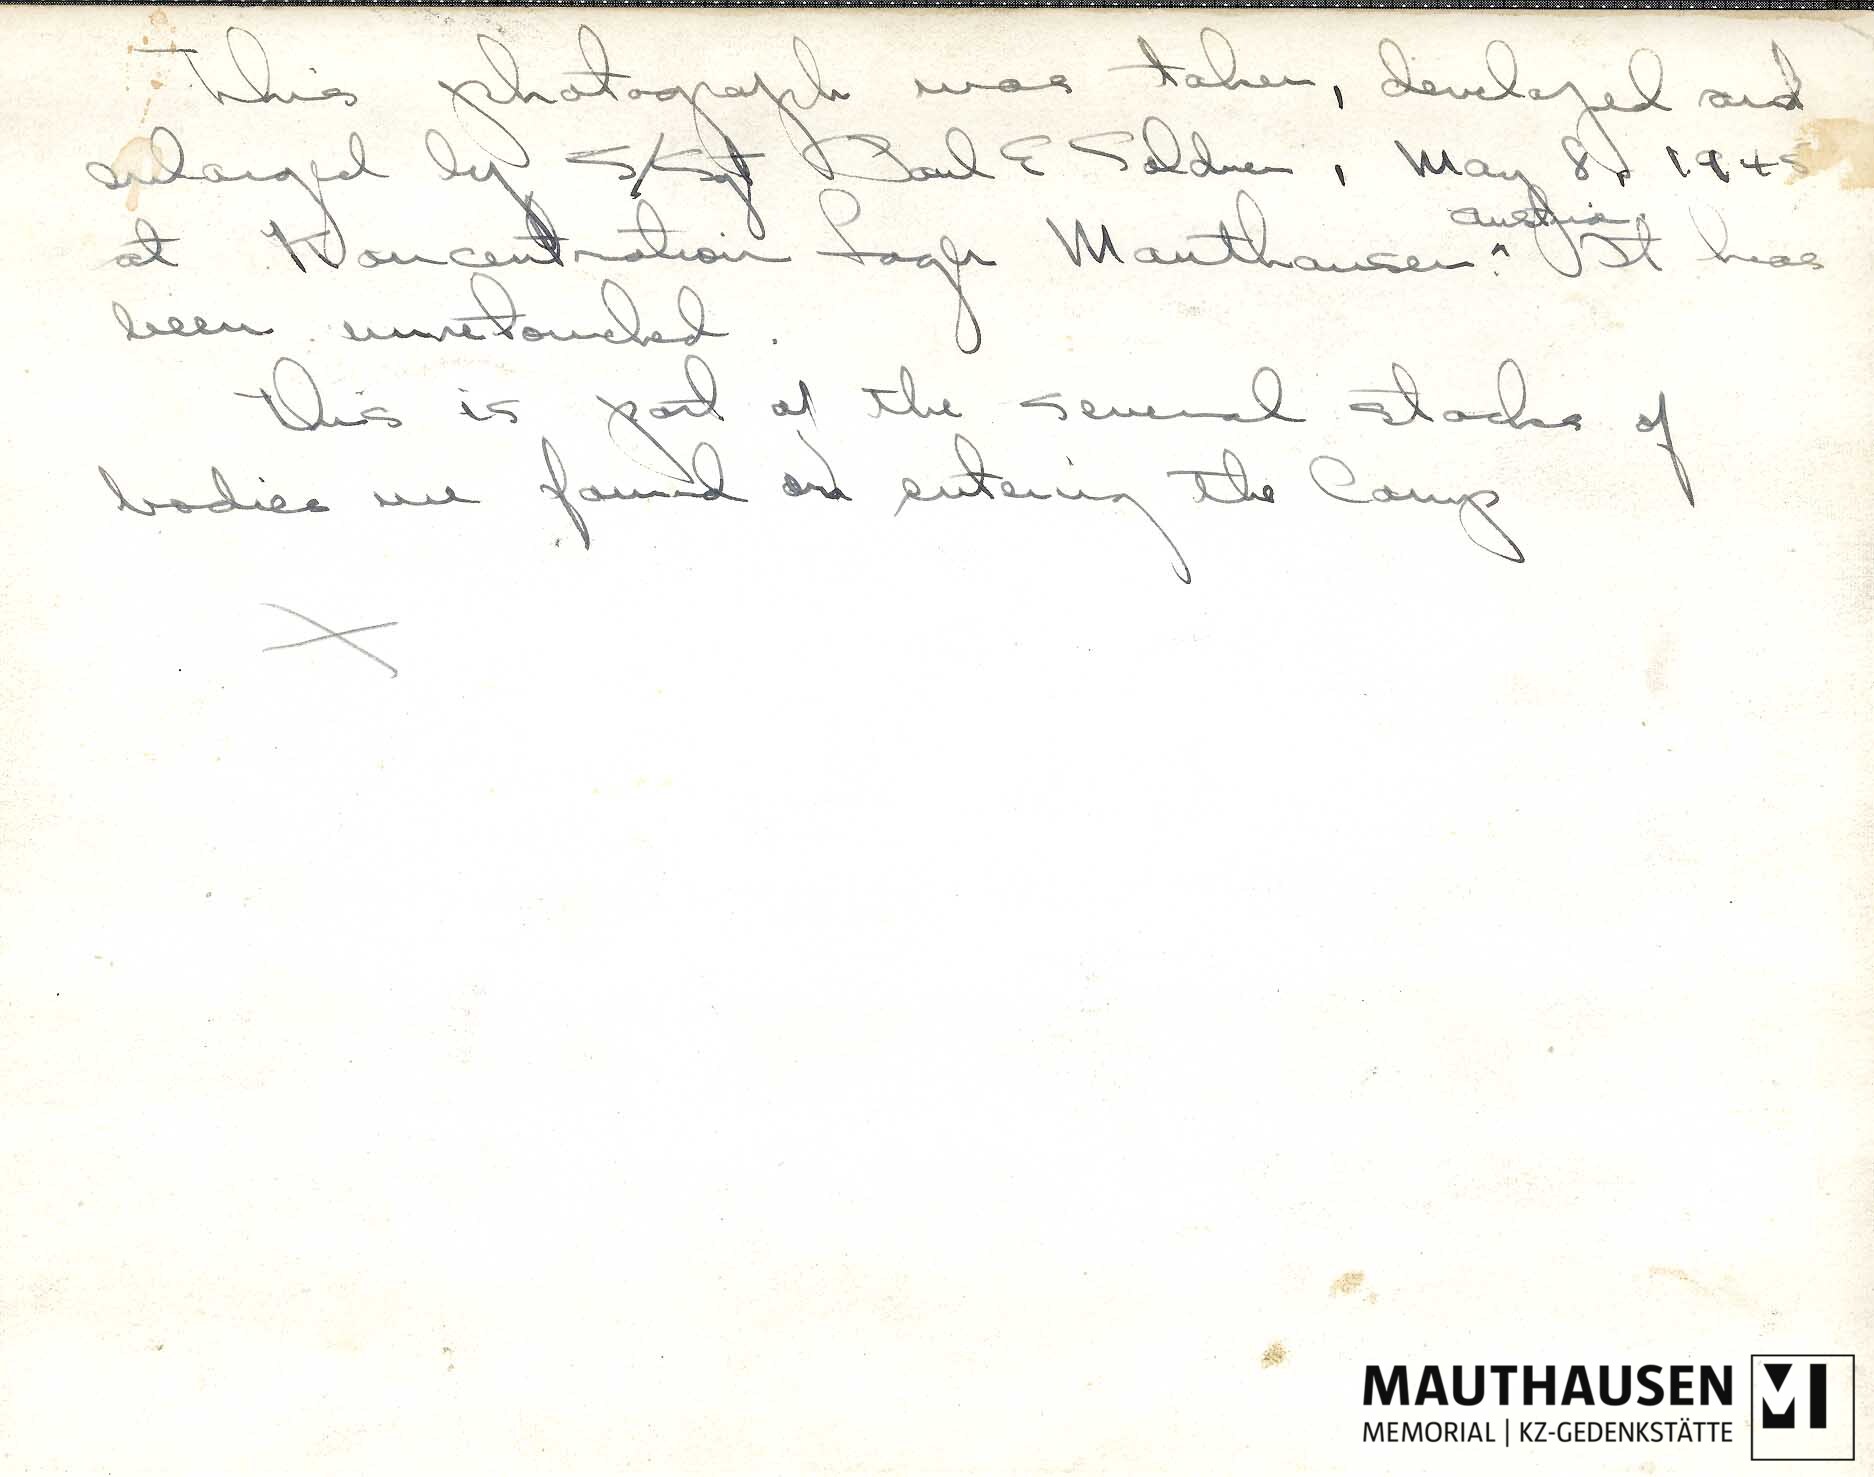 This photograph was taken, developed and
enlarged by S/Sgt Paul E Soldner, May 8, 1945
at Koncentration Lager Mauthausen ^ Austria. It has
been unretouched.
This is part of the several stacks of
bodies we found on entering the Camp
X
MAUTHAUSEN
MEMORIAL | KZ-GEDENKSTÄTTE
M